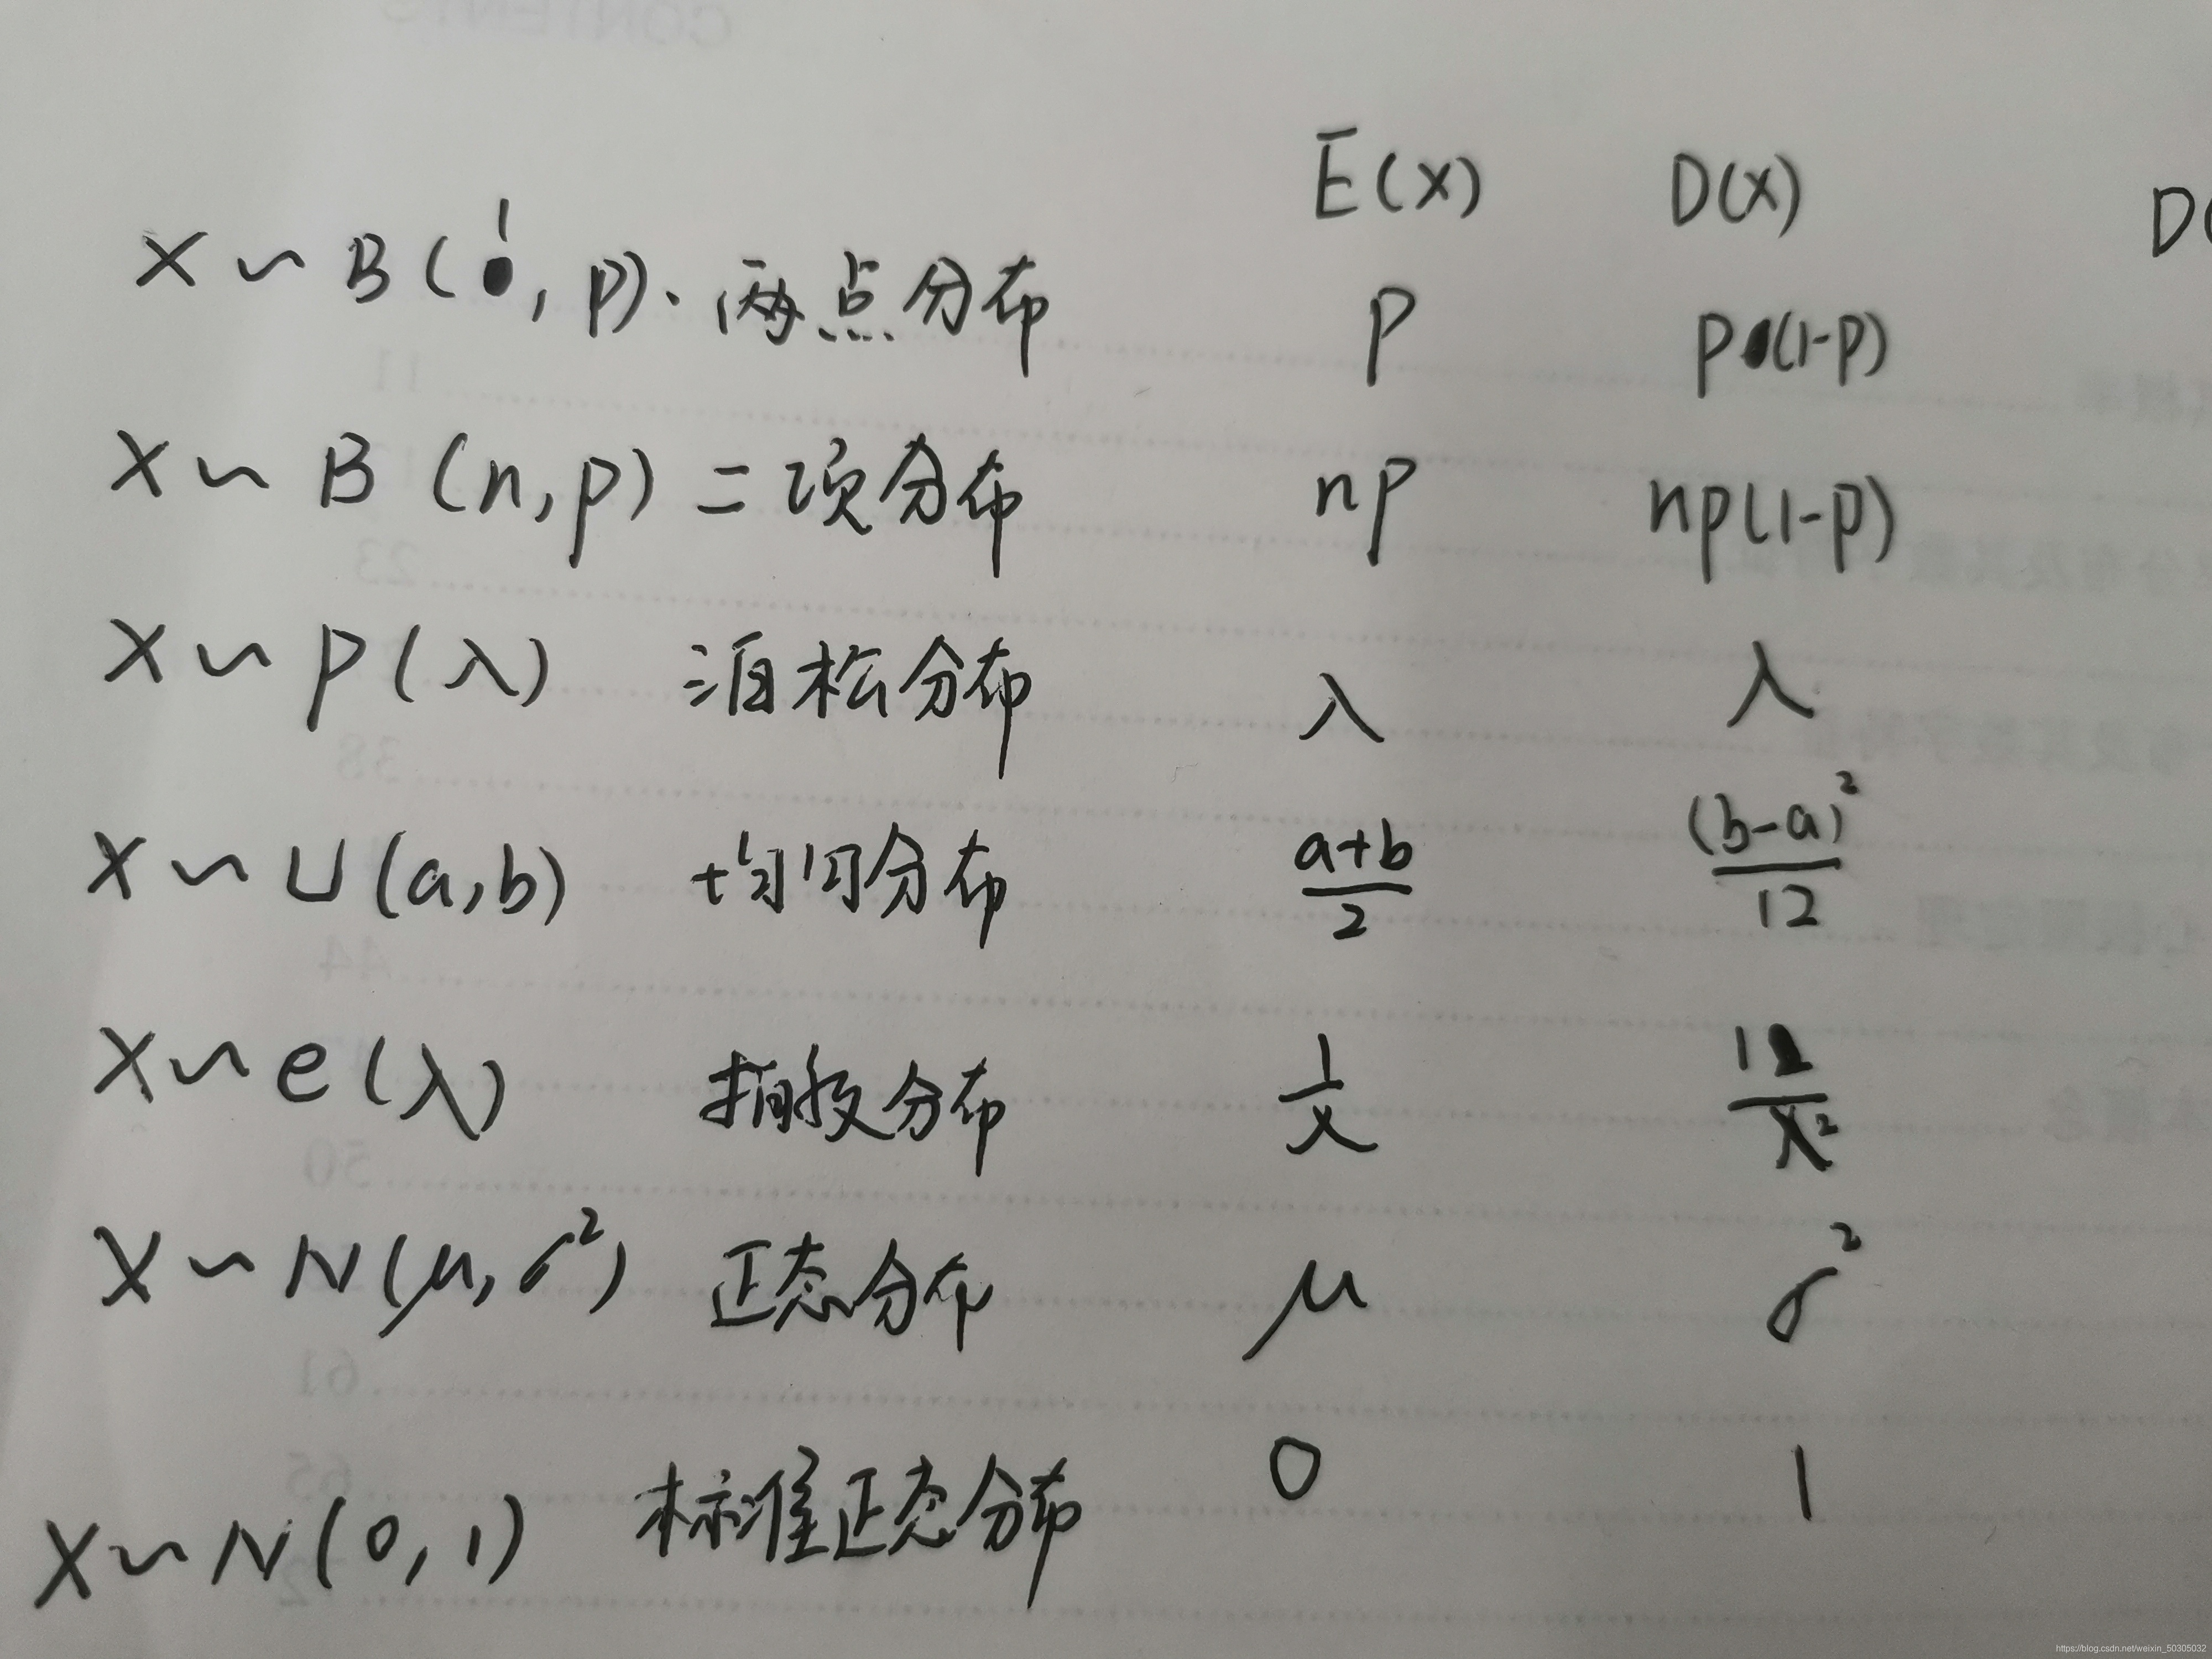 E(X) D(X) D(
X ~ B(1, p). 两点分布 p p(1-p)
X ~ B (n, p) 二项分布 np np(1-p)
X ~ P(λ) 泊松分布 λ λ
X ~ U(a,b) 均匀分布 a+b/2 (b-a)²/12
X ~ e(λ) 指数分布 1/λ 1/λ²
X ~ N(μ, σ²) 正态分布 μ σ²
X ~ N(0, 1) 标准正态分布 0 1
https://blog.csdn.net/weixin_50305032